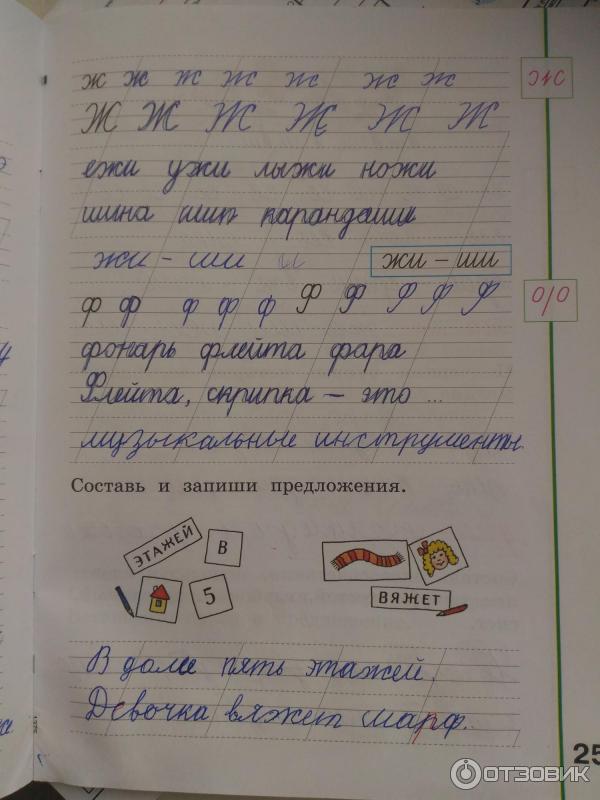 ж ж ж ж ж ж ж
Ж Ж Ж Ж Ж Ж
Ж
ежи ужи лыжи ножи
шина шип карандаши
жи - ши и жи - ши
ф ф ф ф ф Ф Ф Ф Ф Ф
О/О
фонарь флейта фара
Флейта, скрипка - это ...
музыкальные инструменты.
Составь и запиши предложения.
ЭТАЖЕЙ В
5
ВЯЖЕТ
В доме пять этажей.
Девочка вяжет шарф.
25
ОТЗОВИК